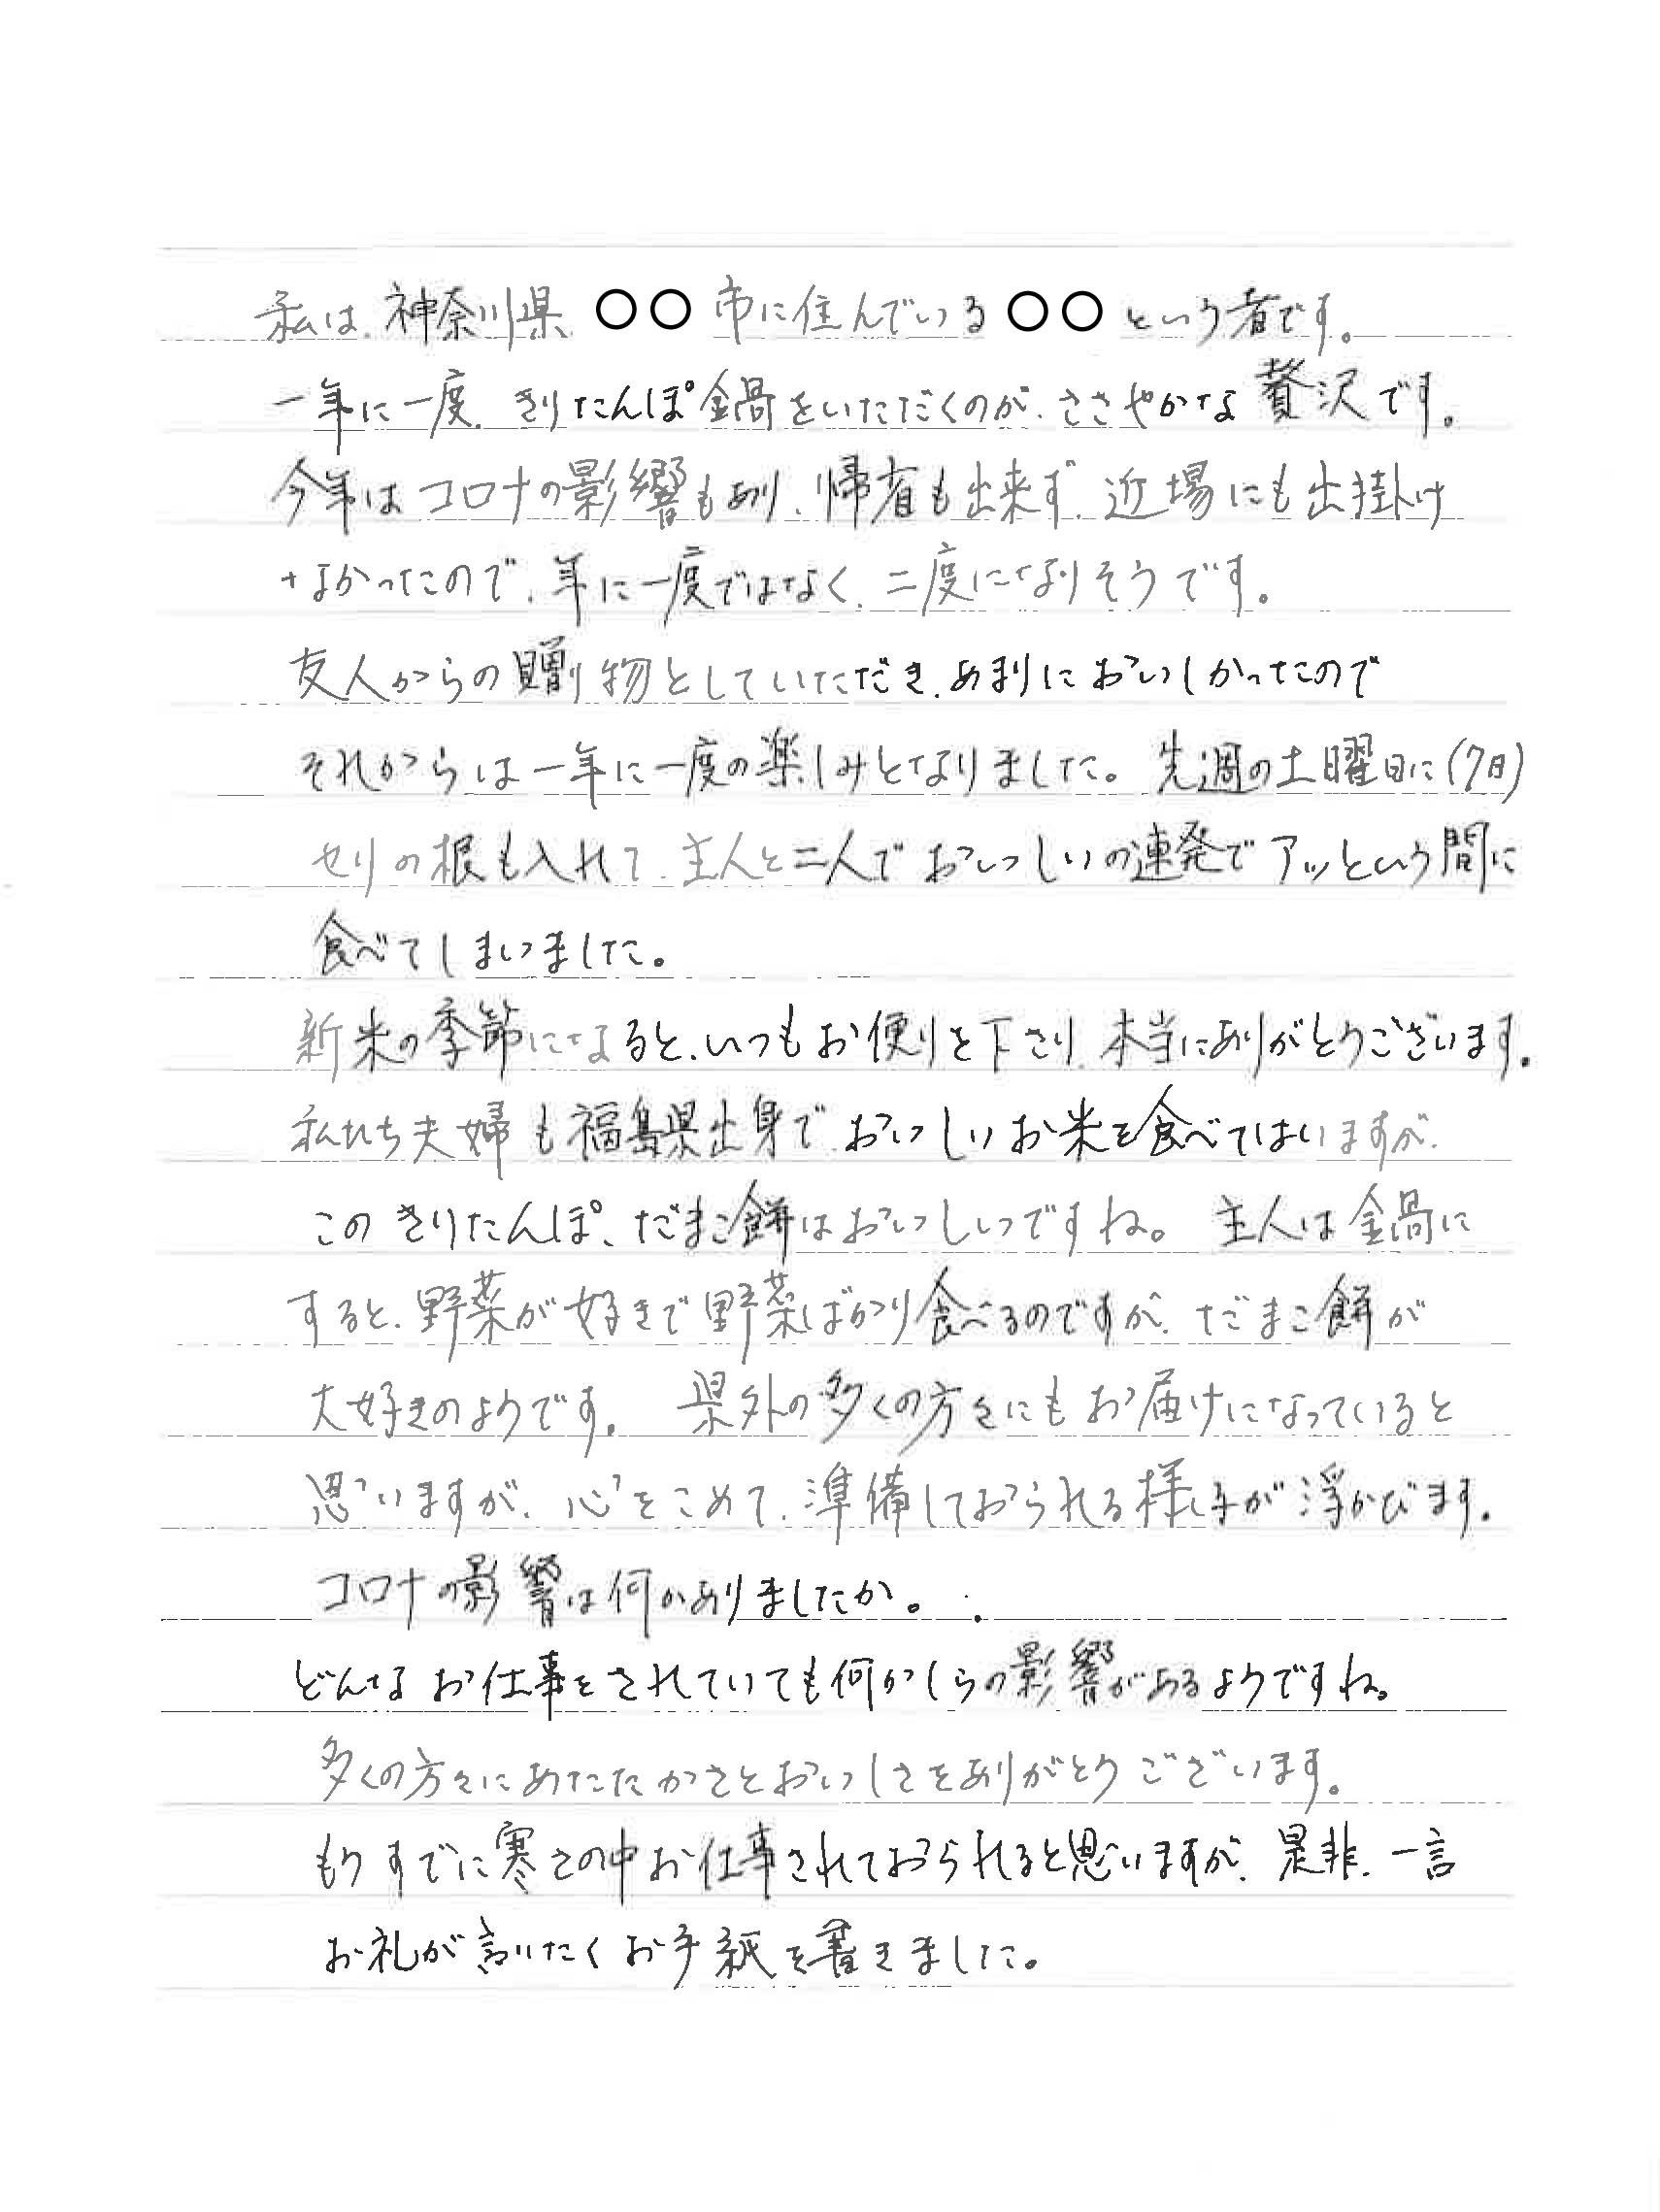 私は、神奈川県、〇〇市に住んでいる〇〇という者です。
一年に一度、きりたんぽ鍋をいただくのが、ささやかな贅沢です。
今年はコロナの影響もあり、帰省も出来ず、近場にも出掛け
なかったので、年に一度ではなく、二度になりそうです。
友人からの贈り物としていただき、あまりにおいしかったので
それからは一年に一度の楽しみとなりました。先週の土曜日に(7日)
せりの根も入れて、主人と二人でおいっしいの連発でアッという間に
食べてしまいました。
新米の季節になると、いつもお便りを下さり、本当にありがとうございます。
私たち夫婦も福島県出身で、おいしいお米を食べてはいますが、
このきりたんぽ、だまこ餅はおいっしいですね。主人は鍋に
すると、野菜が好きで野菜ばかり食べるのですが、だまこ餅が
大好きのようです。県外の多くの方々にもお届けになっていると
思いますが、心をこめて、準備しておられる様子が浮かびます。
コロナの影響は何かありましたか。
どんなお仕事をされていても何かしらの影響があるようですね。
多くの方々にあたたかさとおいしさをありがとうございます。
もうすでに寒さの中お仕事されておられると思いますが、是非、一言
お礼が言いたくお手紙を書きました。